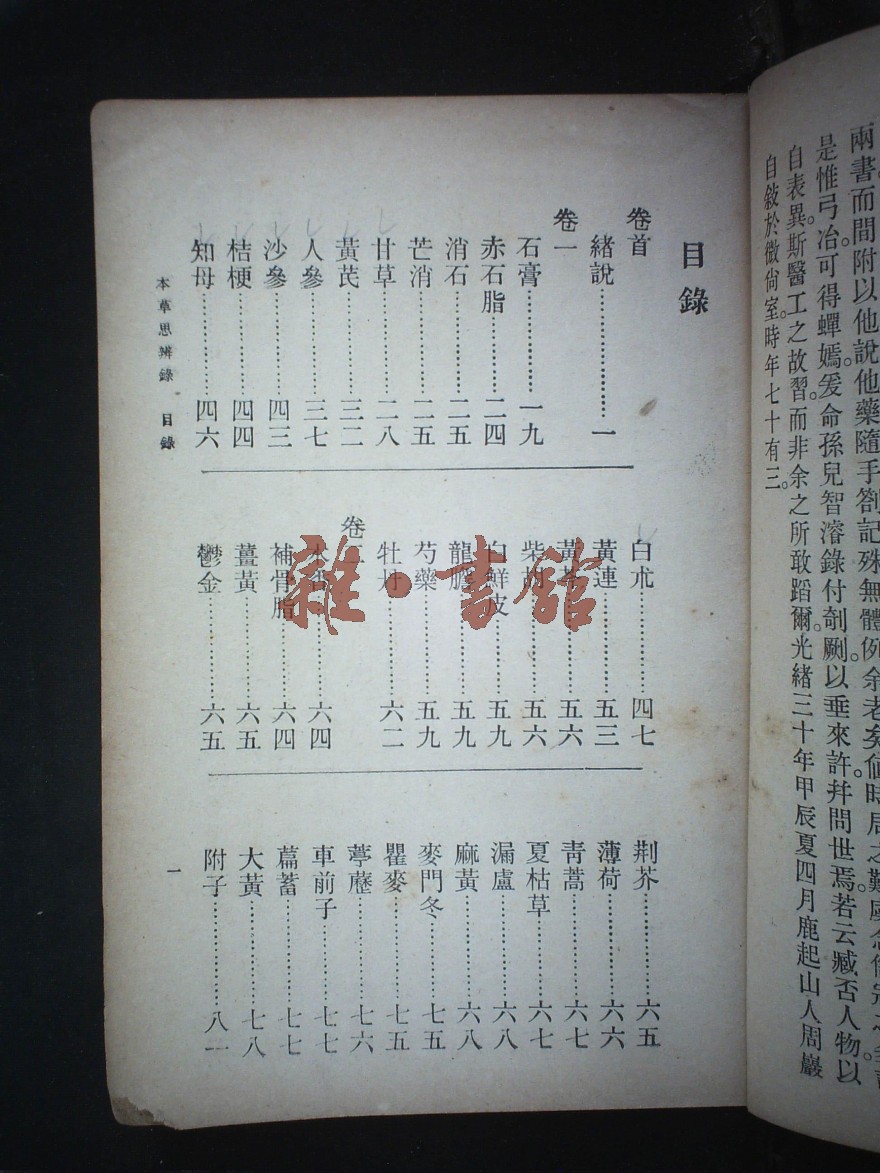 兩書而間附以他說他藥隨手劄記殊無體例余老矣值時局之難
是惟弓冶可得蟬嫣爰命孫兒智濬錄付剞劂以垂來許幷問世焉若云臧否人物以
自表異斯醫工之故習而非余之所敢蹈爾光緒三十年甲辰夏四月鹿起山人周巖
自敍於微尙室時年七十有三
目錄
卷首
緒說…………一
卷一
石膏…………一九
赤石脂…………二四
消石…………二五
芒消…………二五
甘草…………二八
黃芪…………三二
人參…………三七
沙參…………四三
桔梗…………四四
知母…………四六
白朮…………四七
黃連…………五三
黃芩…………五六
柴胡…………五六
白鮮皮…………五九
龍膽…………五九
芍藥…………五九
牡丹…………六二
卷二
木香…………六四
補骨脂…………六四
薑黃…………六五
鬱金…………六五
荆芥…………六五
薄荷…………六六
靑蒿…………六七
夏枯草…………六七
漏盧…………六八
麻黃…………六八
麥門冬…………七五
瞿麥…………七五
葶藶…………七六
車前子…………七七
萹蓄…………七七
大黃…………七八
附子…………八一
本草思辨錄 目錄
一
雜·書館